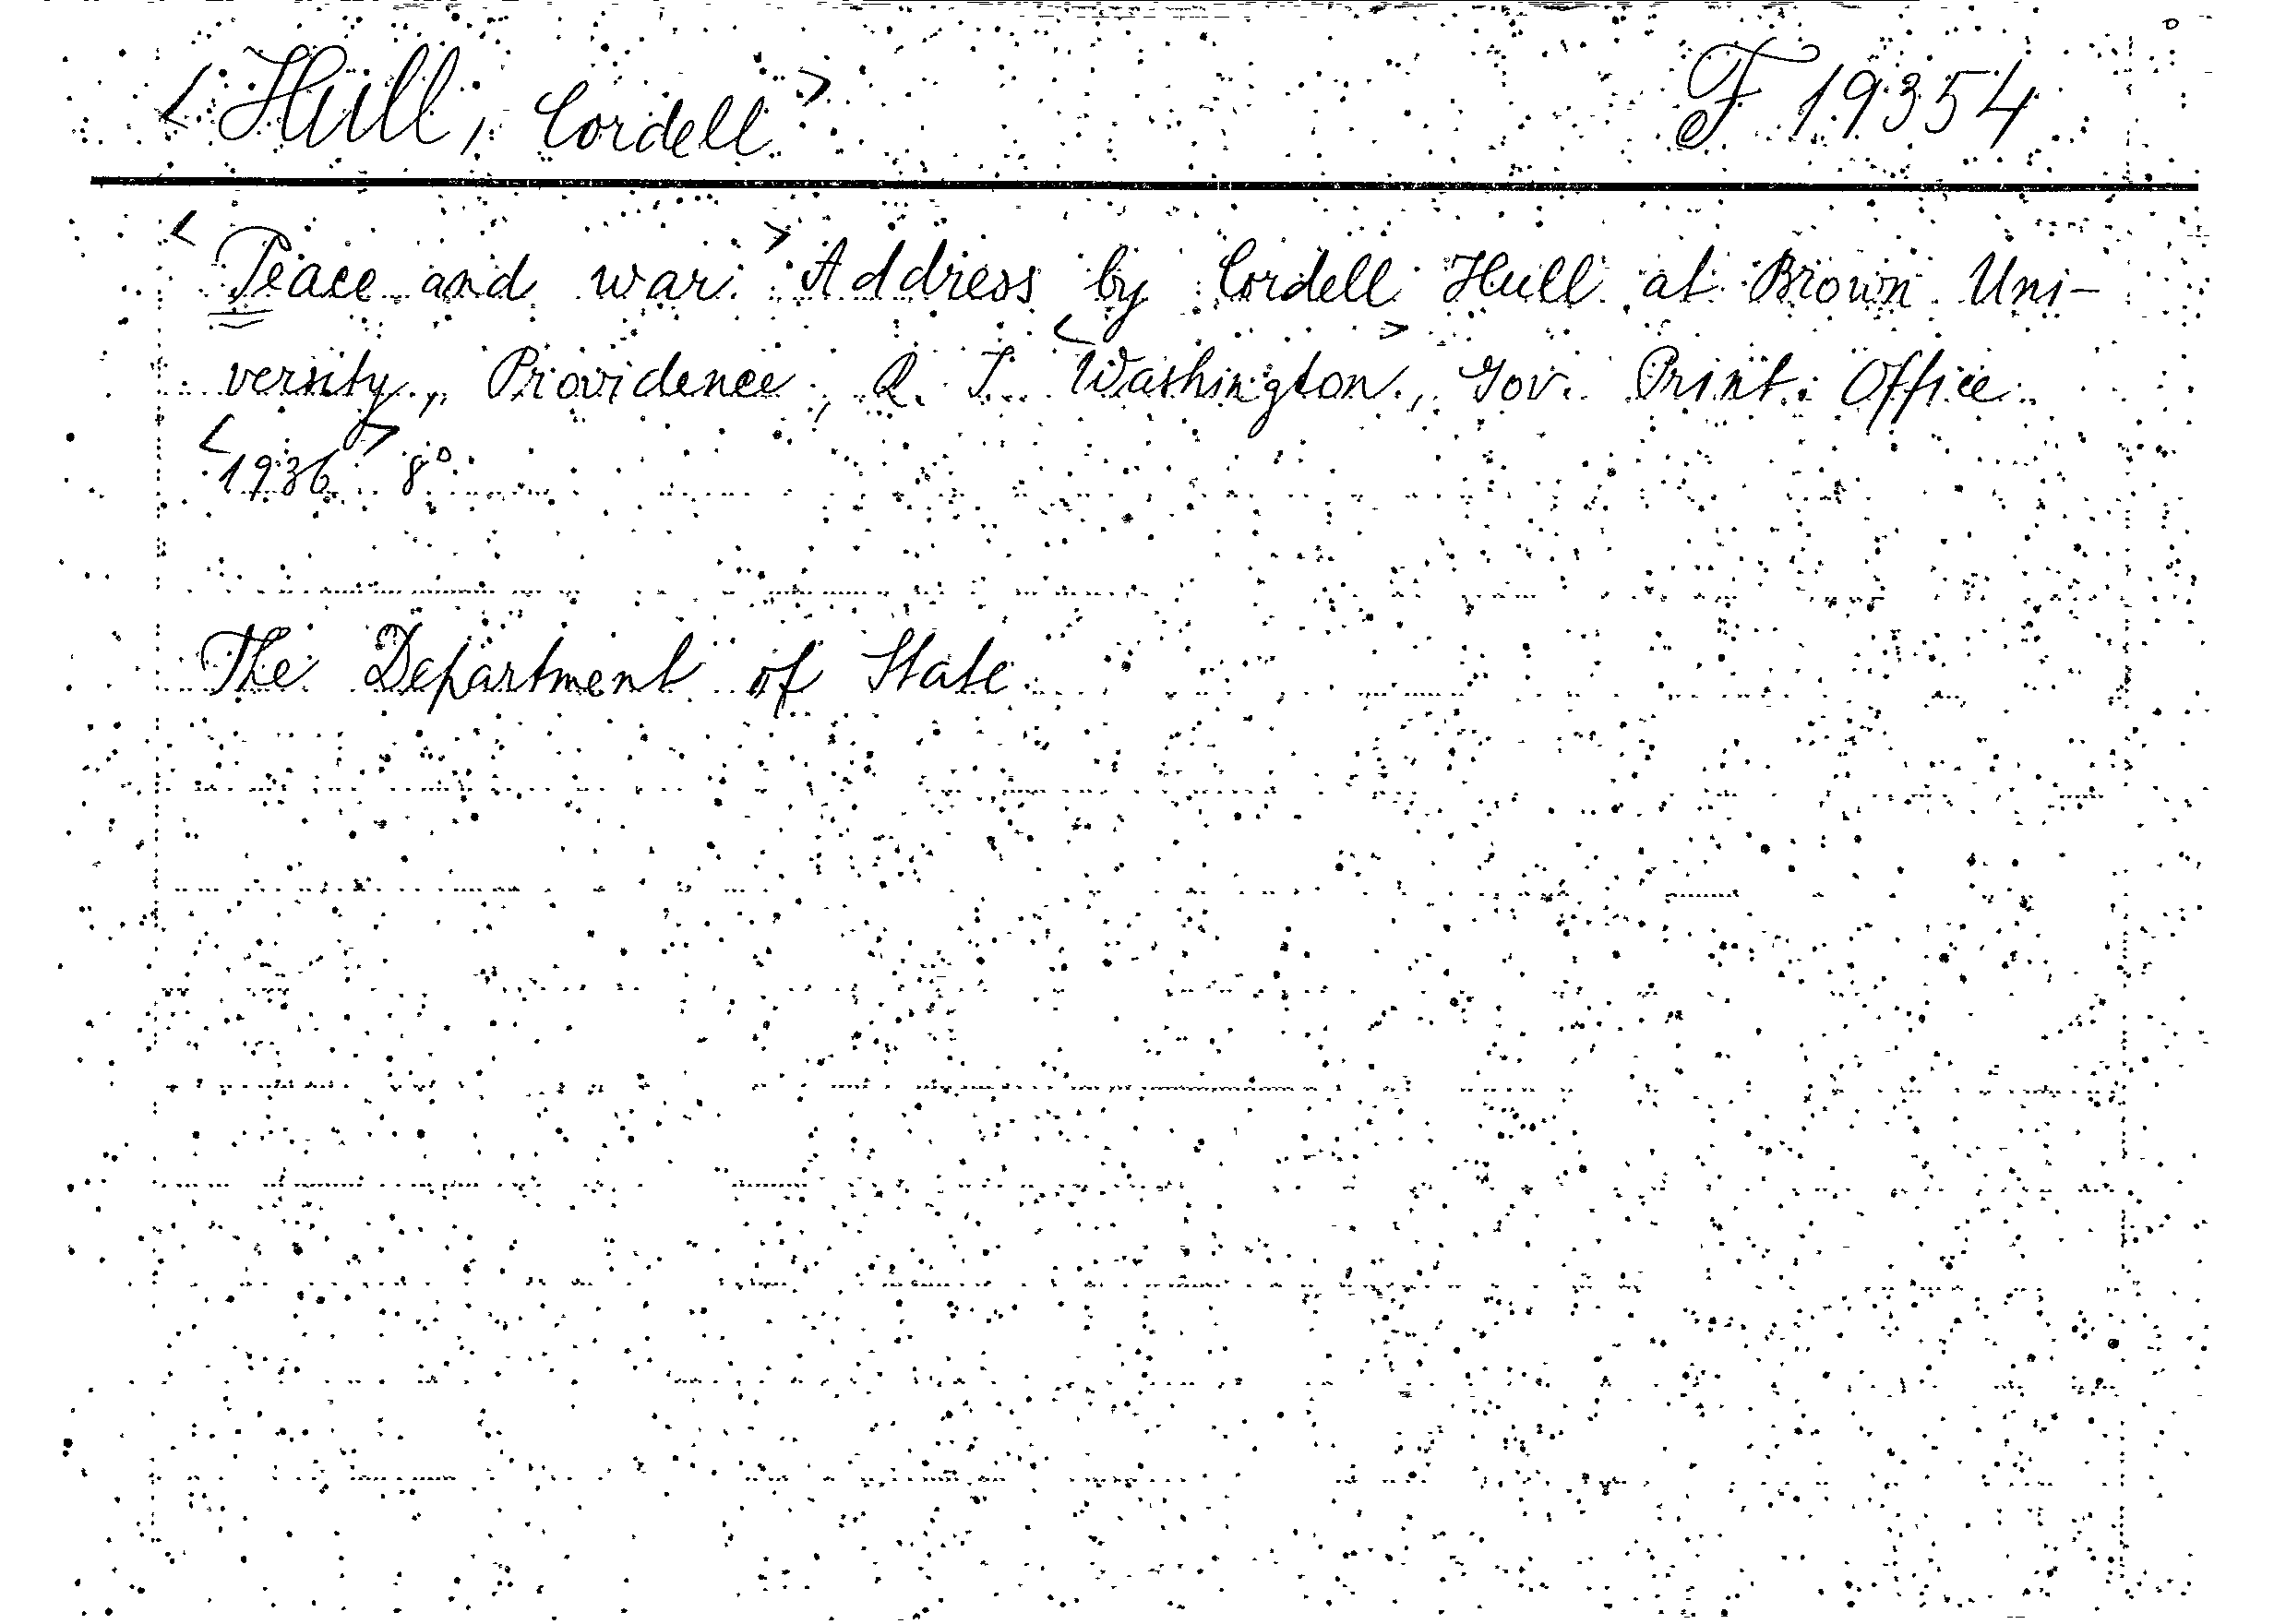 <Hull, Cordell> F 19354
<Peace and war.> Address by Cordell Hull at Brown Uni-
versity, Providence, R. I. <Washington>, Gov. Print. Office.
<1936> 8°
The Department of State